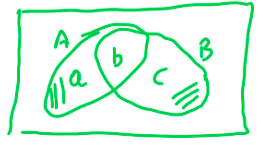 A B
a b c